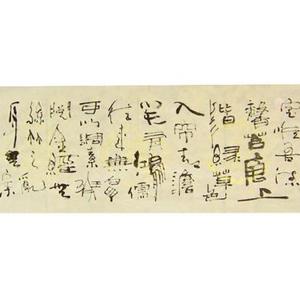 室惟吾德
馨苔痕上
階緑草色
入帘青談
笑有鴻儒
往來無白丁
可以調素琴
閱金經無
絲竹之亂
耳無案